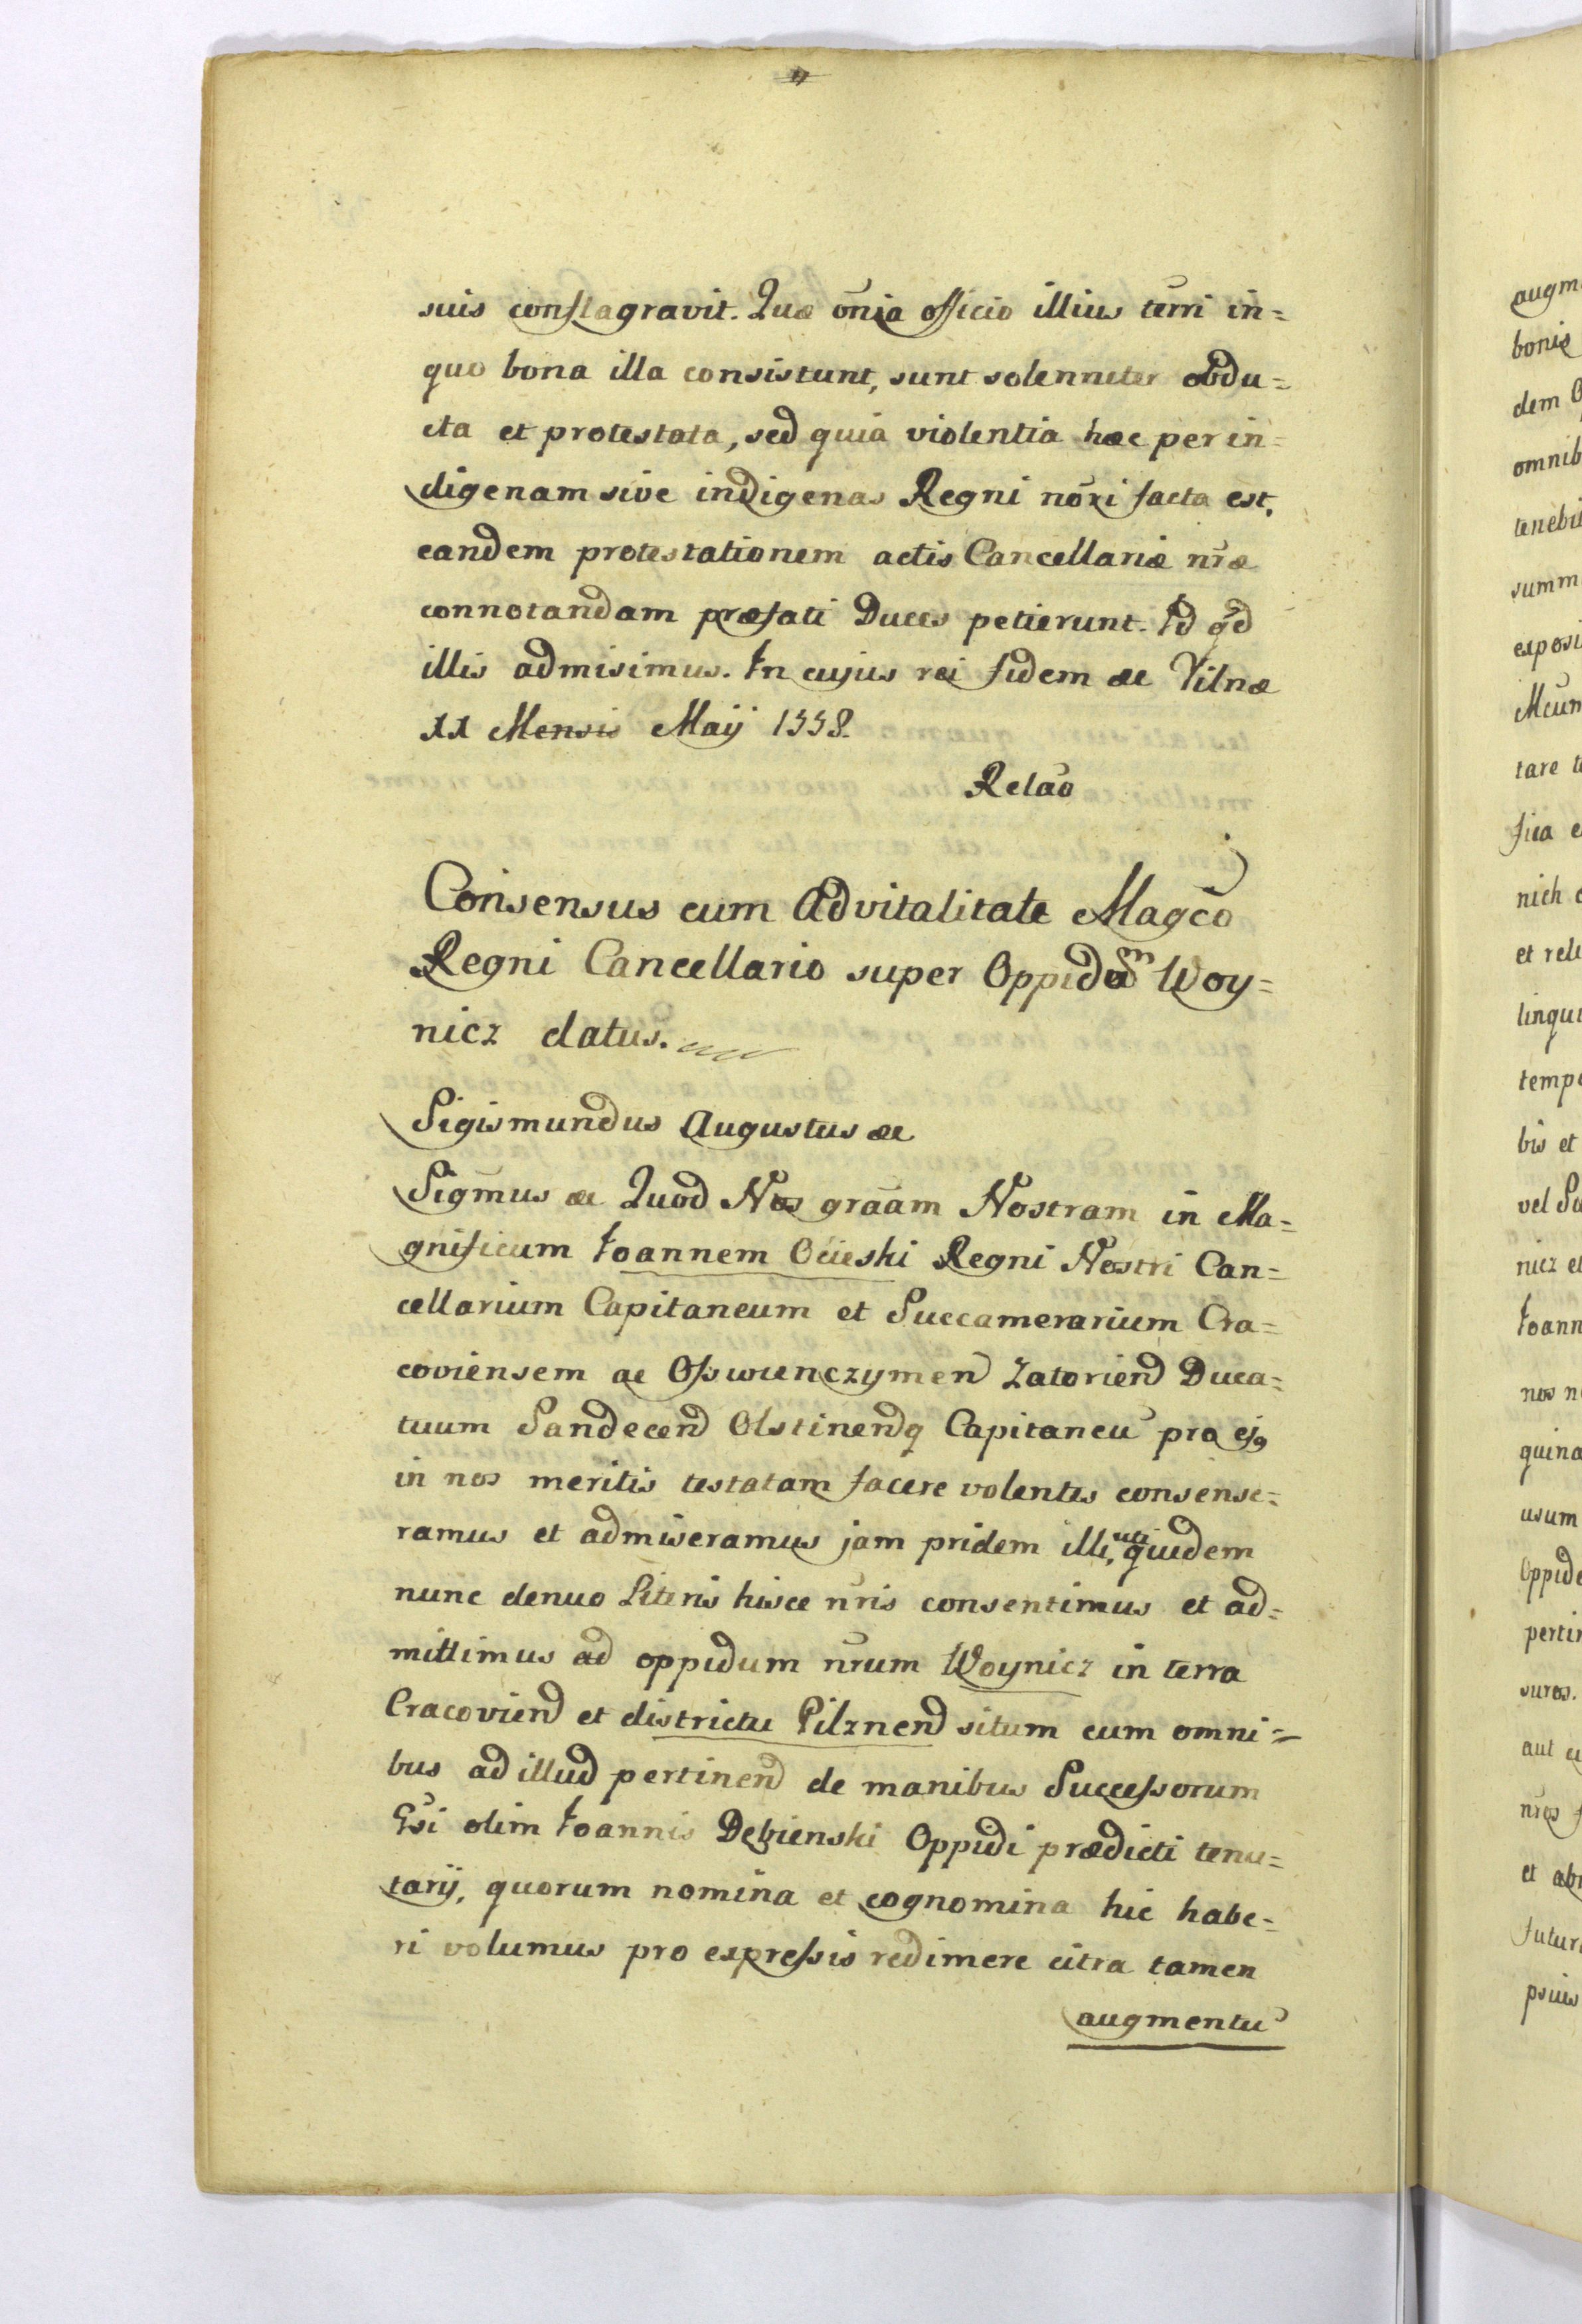 suis conflagravit. Quæ onia officio illius terri in=
quo bona illa consistunt, sunt solenniter obdu=
cta et protestata, sed quia violentia hæc per in=
digenam sive indigenas Regni nõri facta est,
eandem protestationem actis Cancellariæ nr̃æ
connotandam præfati Duces petierunt. Id qd
illis admisimus. In cujus rei fidem &c Vilnæ
XX Mensis Maij 1558.
Relão
Consensus cum Advitalitate Magco
Regni Cancellario super Oppidum Woy=
nicz datus.
Sigismundus Augustus &c
Sigmus &c Quod Nos graãm Nostram in Ma=
gnificum Ioannem Ocieski Regni Nostri Can=
cellarium Capitaneum et Succamerarium Cra=
coviensem ac Osswienczymen Zatorien Duca=
tuum Sandecen Olstinenq Capitaneu pro ej9
in nos meritis testatam facere volentes consense=
ramus et admiseramus jam pridem illi, uti quidem
nunc denuo Literis hisce nr̃is consentimus et ad=
mittimus ad oppidum nr̃um Woynicz in terra
Cracovien et districtu Pilznen situm cum omni=
bus ad illud pertinen de manibus Successorum
Gsi olim Ioannis Dębienski Oppidi prædicti tenu=
tarij, quorum nomina et cognomina hic habe=
ri volumus pro expressis redimere citra tamen
augmentu
augm
bonis
dem
omnib
tenebi
summ
exposi
Mcum
tare
fica e
nich
et reli
linqu
temp
bis et
vel
nicz et
Ioann
nos n
quina
usum
Oppid
perti
suros.
aut
nros
et ab
futur
psius